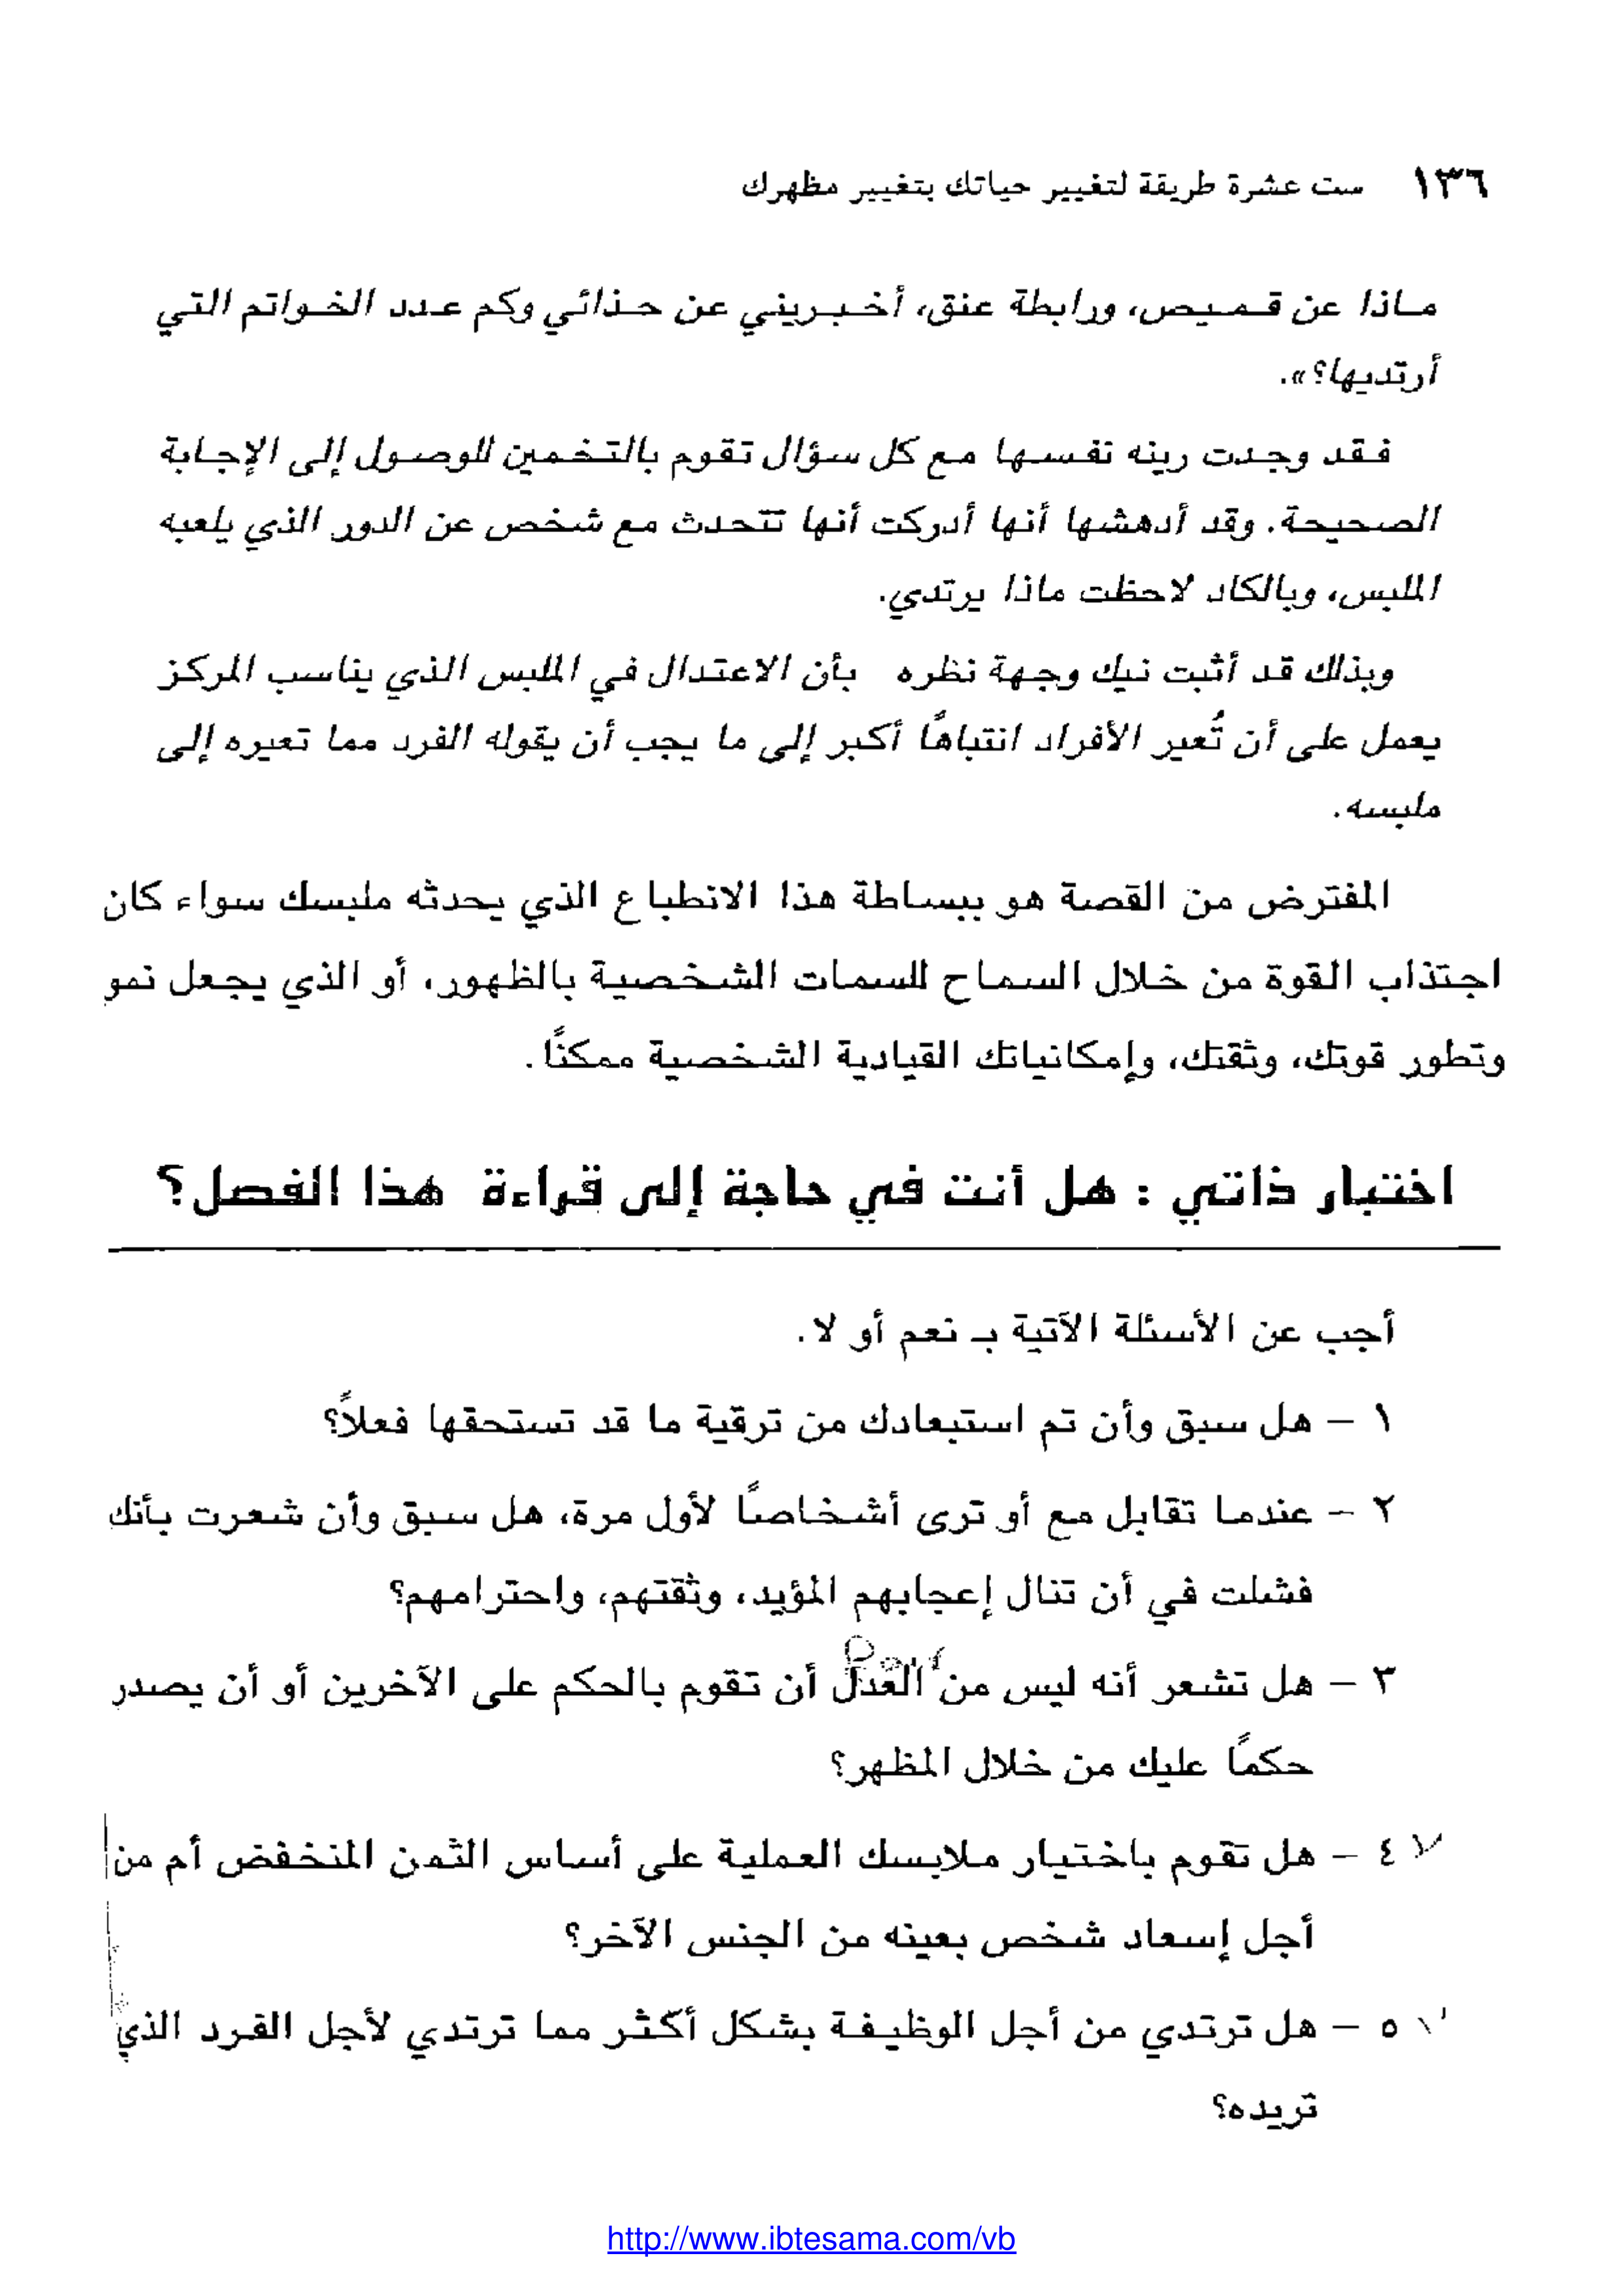 ١٣٦ ست عشرة طريقة لتغيير حياتك بتغيير مظهرك
ماذا عن قميص، ورابطة عنق، أخبريني عن حذائي وكم عدد الخواتم التي
أرتديها؟».
فقد وجدت رينه نفسها مع كل سؤال تقوم بالتخمين للوصول إلى الإجابة
الصحيحة. وقد أدهشها أنها أدركت أنها تتحدث مع شخص عن الدور الذي يلعبه
الملبس، وبالكاد لاحظت ماذا يرتدي.
وبذلك قد أثبت نيك وجهة نظره بأن الاعتدال في الملبس الذي يناسب المركز
يعمل على أن تُعير الأفراد انتباهًا أكبر إلى ما يجب أن يقوله الفرد مما تعيره إلى
ملبسه.
المفترض من القصة هو ببساطة هذا الانطباع الذي يحدثه ملبسك سواء كان
اجتذاب القوة من خلال السماح للسمات الشخصية بالظهور، أو الذي يجعل نمو
وتطور قوتك، وثقتك، وإمكانياتك القيادية الشخصية ممكنًا.
اختبار ذاتي : هل أنت في حاجة إلى قراءة هذا الفصل؟
أجب عن الأسئلة الآتية بـ نعم أو لا.
١ – هل سبق وأن تم استبعادك من ترقية ما قد تستحقها فعلاً؟
٢ – عندما تقابل مع أو ترى أشخاصًا لأول مرة، هل سبق وأن شعرت بأنك
فشلت في أن تنال إعجابهم المؤيد، وثقتهم، واحترامهم؟
٣ – هل تشعر أنه ليس من العدل أن تقوم بالحكم على الآخرين أو أن يصدر
حكمًا عليك من خلال المظهر؟
٤ – هل تقوم باختيار ملابسك العملية على أساس الثمن المنخفض أم من
أجل إسعاد شخص بعينه من الجنس الآخر؟
٥ – هل ترتدي من أجل الوظيفة بشكل أكثر مما ترتدي لأجل الفرد الذي
تريده؟
http://www.ibtesama.com/vb